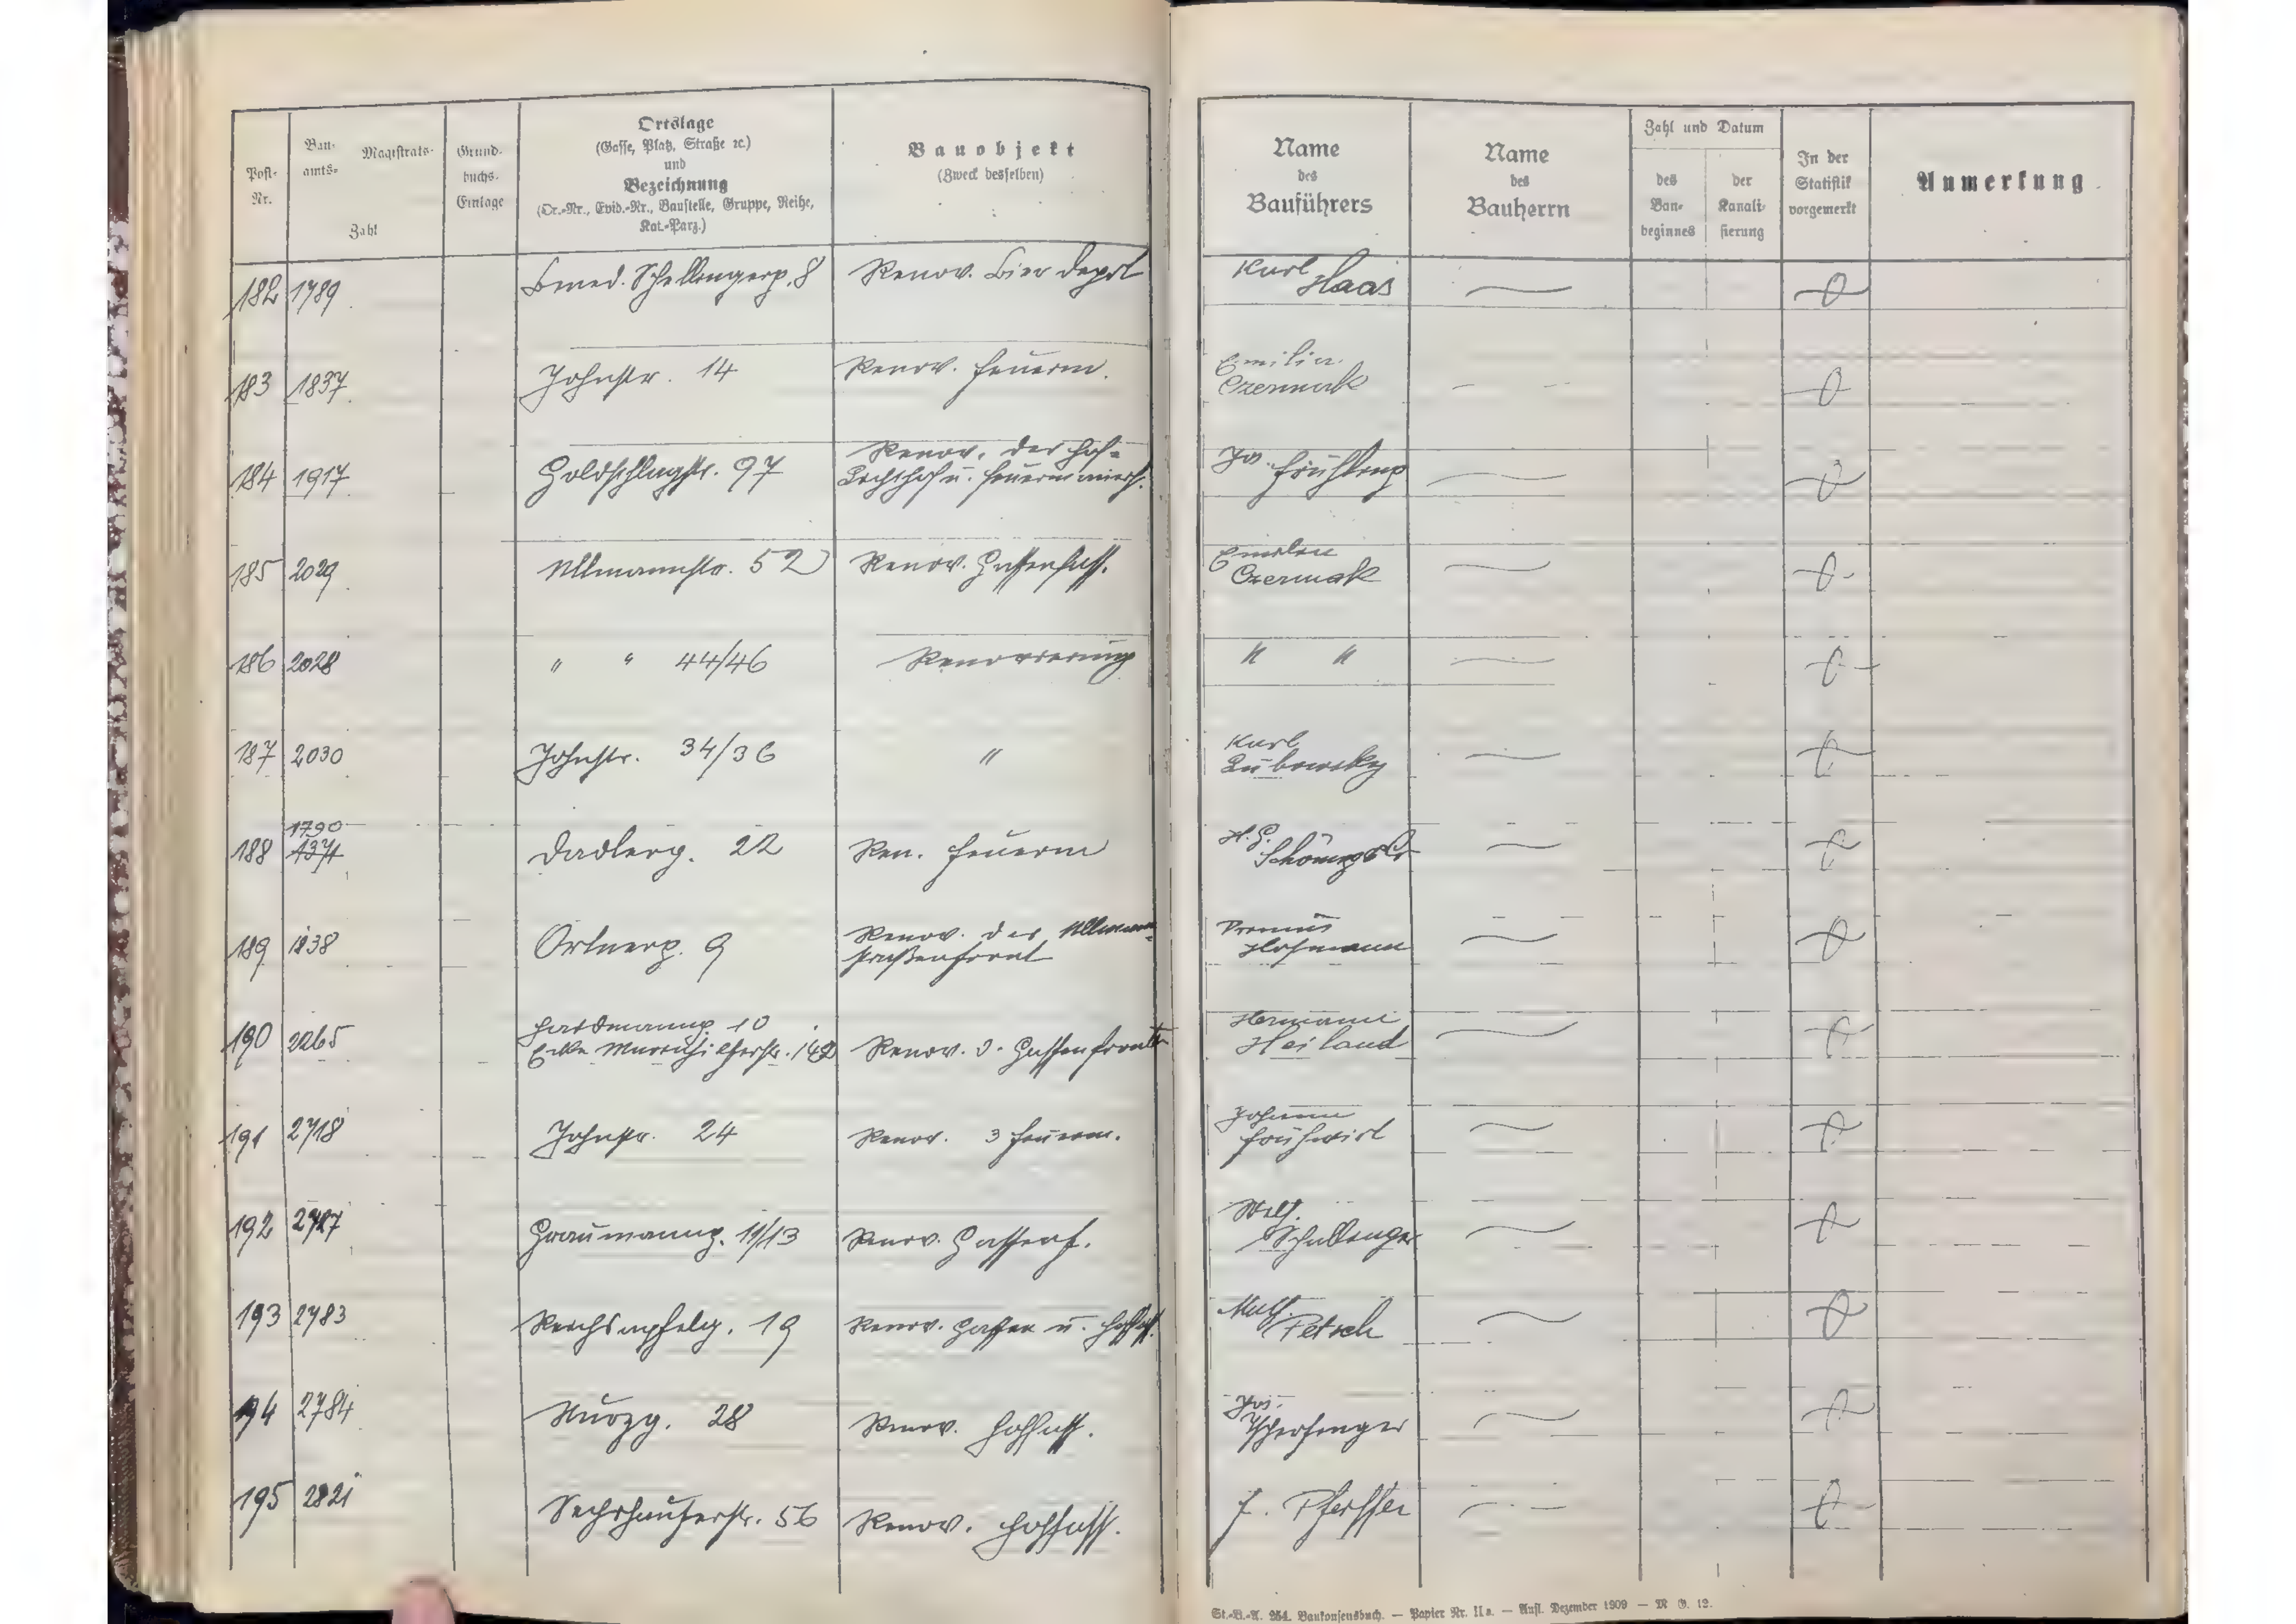 Post-Nr.
Bauamts- Magistrats-
Zahl
Grundbuchs-Einlage
Ortslage
(Gasse, Platz, Straße ꝛc.)
und
Bezeichnung
(Or.-Nr., Evid.-Nr., Baustelle, Gruppe, Reihe,
Kat.-Parz.)
Bauobjekt
(Zweck desselben)
Name
des
Bauführers
Name
des
Bauherrn
Zahl und Datum
des
Bau-
beginnes
der
Kanali-
sierung
In der
Statistik
vorgemerkt
Anmerkung
182 1789 Bened. Schellingerg. 8 Renov. Bier Depot Karl Haas
183 1837 Johnstr. 14 Renov. Feuerm. Emilian Czermak
184 1917 Goldschlagstr. 97 Renov. der Hof- Lichthof u. Feuermauern Jos.
185 2029 Ullmannstr. 52 Renov. Gassenfass. Emilian Czermak
186 2028 " " 44/46 Renovierung " "
187 2030 Johnstr. 34/36 " Karl Lubowsky
188 1790 1371 Dadlerg. 22 Ren. Feuerm
189 1838 Ortnerg. 9 Renov. der Ullmannstraßenfront Hofmann
190 2265 Hardtmuthg. 10 Ecke Mariahilferstr. 142 Renov. d. Gassenfronten Hermann Heiland
191 2718 Johnstr. 24 Renov. 3 Feuerm. Johann Frühwirt
192 2727 Graumanng. 11/13 Renov. Gassenf.
193 2783 Reichsapfelg. 19 Renov. Gassen u. Hoffass. Math. Petsch
194 2784 28 Renov. Hoffass. Jos.
195 2821 Sechshauserstr. 56 Renov. Hoffass. F. Pfeiffer
St.-B.-A. 254. Baukonsensbuch. — Papier Nr. IIa. — Aufl. Dezember 1909 — M. G. 12.